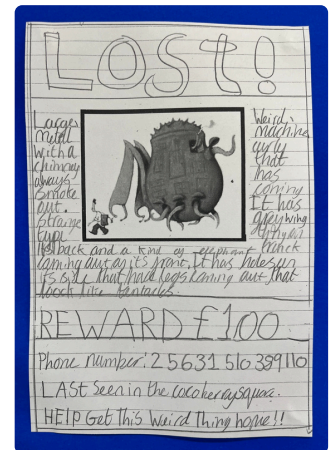 LOST!
Large
metal
with a
chimney
always
Smoke
out.
strange
type
Weird,
machine
curly
that
has
coming
It has
grey wing
its back and a kind of elephant trunk
coming out of it's front. It has holes in
it's side that have legs coming out, that
look like tentacles.
REWARD £100
Phone number: 25631510339110
LAst seen in the cocoberry square.
HELP Get this Weird Thing home!!